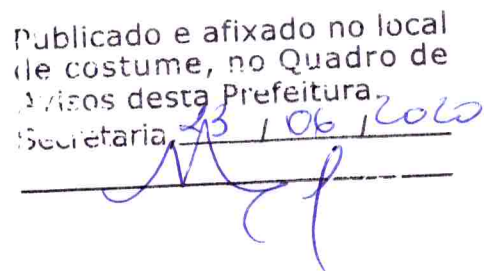 Publicado e afixado no local
de costume, no Quadro de
Avisos desta Prefeitura.
Secretaria, 23 / 06 / 2020